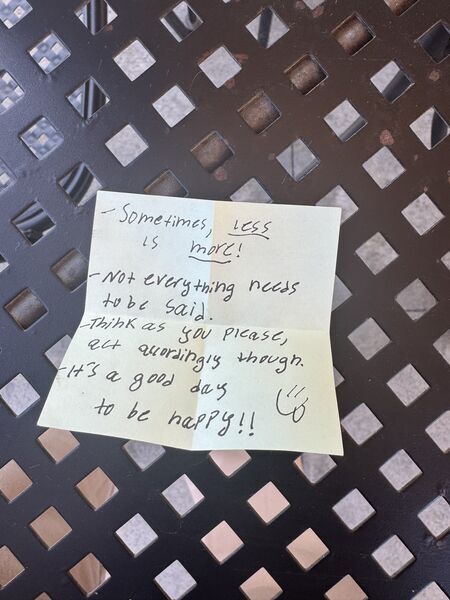 - Sometimes, less
is more!
- Not everything needs
to be said.
- Think as you please,
act accordingly though.
- It's a good day
to be happy!!